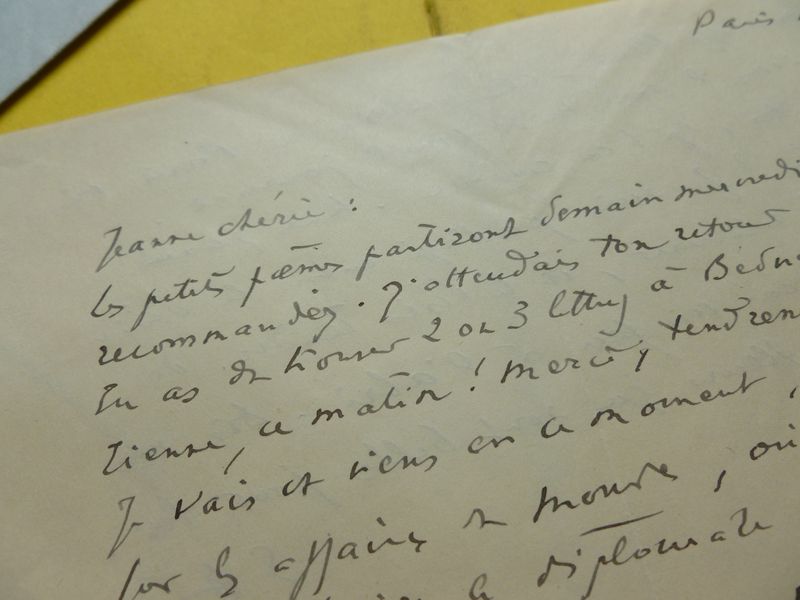 Paris
Jeanne chérie :
les petits poèmes partiront demain mercredi
recommandés. J'attendais ton retour
Tu as dû trouver 2 ou 3 lettres à
tienne, ce matin ! merci, tendrem
Je vais et viens en ce moment,
sur les affaires du monde, où
le diplomate